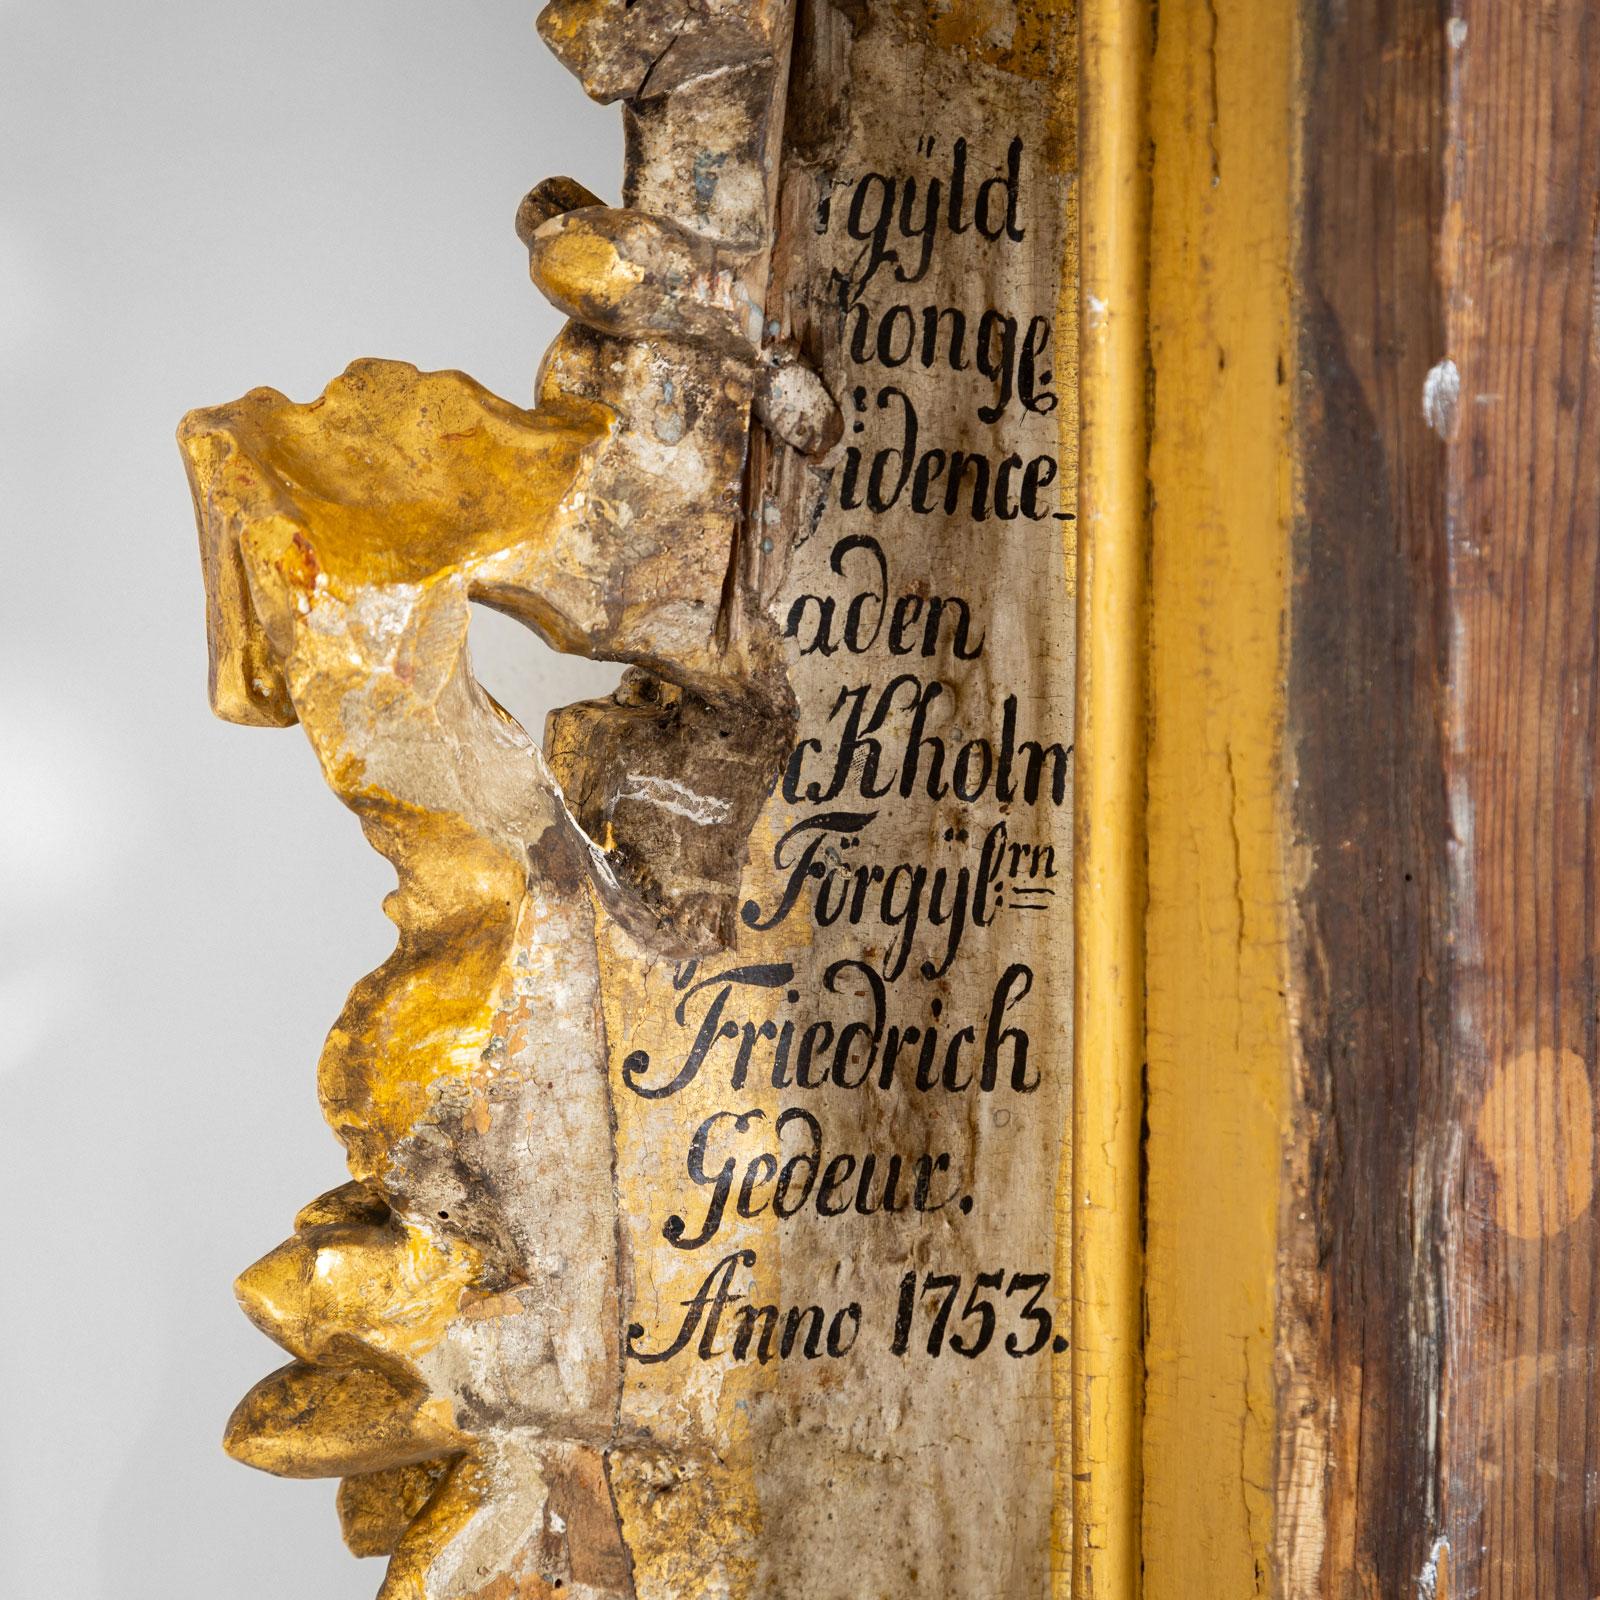 rgÿld
honge:
idence-
aden
cKholm
Förgÿl:rn
Friedrich
Gedeur.
Anno 1753.